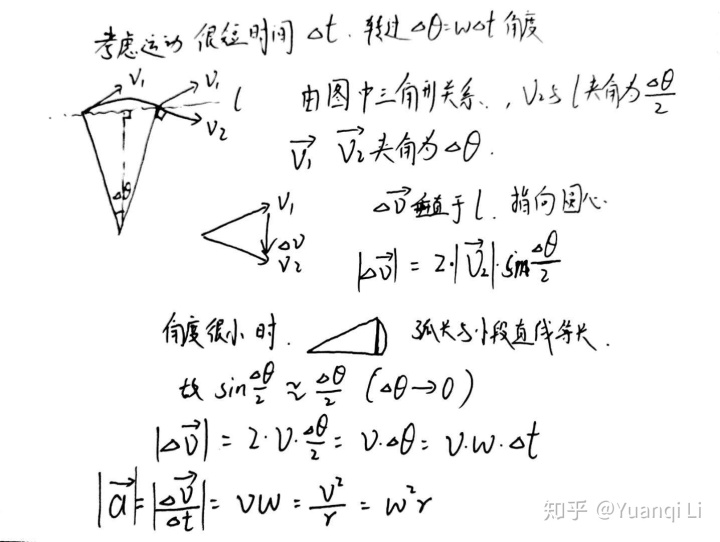 考虑运动很短时间 Δt. 转过 Δθ=wΔt 角度
V₁ V₁ l V₂ Δθ
由图中三角形关系., V₂与l夹角为 Δθ/2
V₁→ V₂→ 夹角为 Δθ.
V₁ Δv V₂
Δv→ 垂直于 l. 指向圆心.
|Δv→| = 2·|V₂→|·sin Δθ/2
角度很小时. 弧长与小段直线等长.
故 sin Δθ/2 ≈ Δθ/2 (Δθ→0)
|Δv→| = 2·v·Δθ/2 = v·Δθ = v·w·Δt
|a→| = |Δv→/Δt| = vw = v²/r = w²r
知乎 @Yuanqi Li